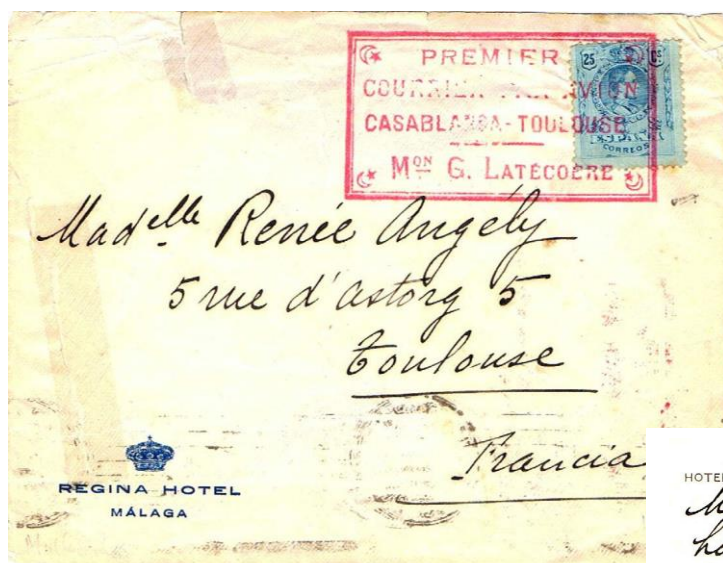 PREMIER
COURRIER PAR AVION
CASABLANCA-TOULOUSE
Mon G. LATÉCOÈRE
25 Cs
CORREOS
Madelle Renée Angély
5 rue d'astorg 5
Toulouse
Francia
REGINA HOTEL
MÁLAGA
HOTEL